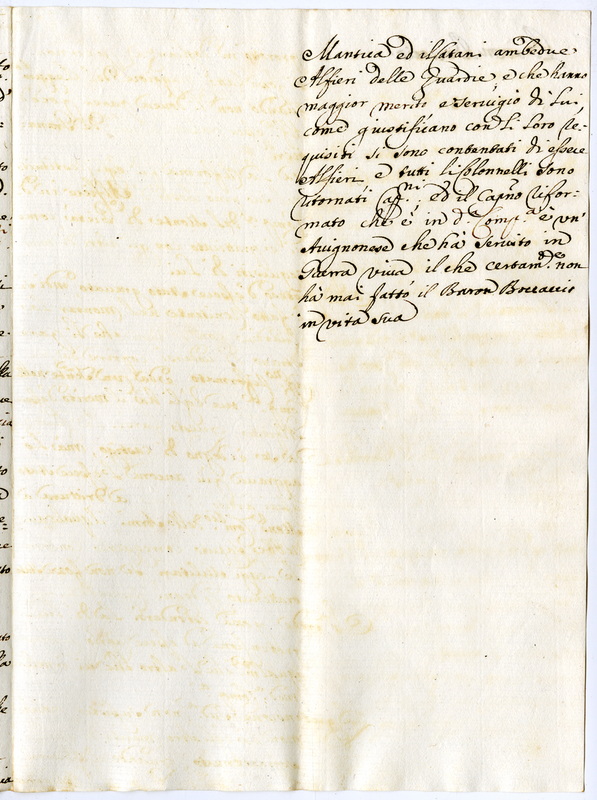 Mantica ed ilsatani ambedue
Alfieri delle Guardie, e che hanno
maggior merito e servigio di Lui
come giustificano con Li Loro Re-
quisiti si sono contentati di essere
Alfieri e tutti li Colonnelli sono
ritornati Capni; ed il Capno Rifor-
mato che è in da Compa è un'
Avignonese che ha servito in
Guerra viva il che certamde non
ha mai fatto il Baron Boccaccio
in vita sua